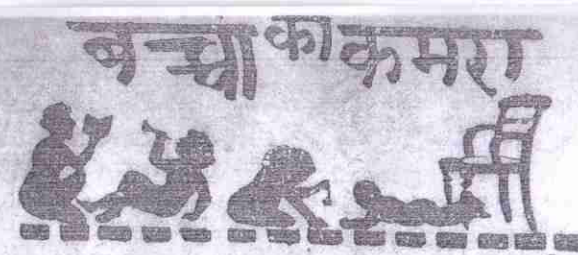 बच्चा का कमरा